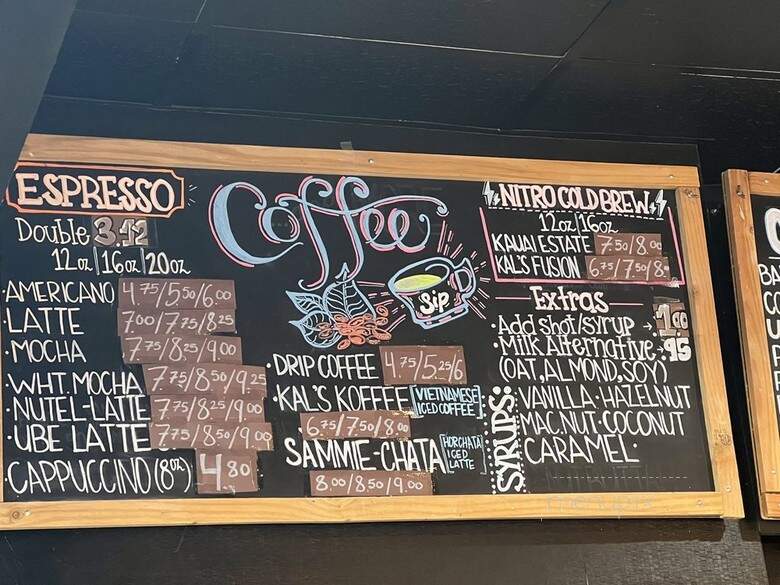 ESPRESSO
Double 3.12
12oz|16oz|20oz
·AMERICANO 4.75/5.50/6.00
·LATTE 7.00/7.75/8.25
·MOCHA 7.75/8.25/9.00
·WHT. MOCHA 7.75/8.50/9.25
·NUTEL-LATTE 7.75/8.25/9.00
·UBE LATTE 7.75/8.50/9.00
·CAPPUCCINO (8oz) 4.80
Coffee
Sip
·DRIP COFFEE 4.75/5.25/6
·KAL'S KOFFEE [VIETNAMESE ICED COFFEE]
6.75/7.50/8.00
SAMMIE-CHATA [HORCHATA ICED LATTE]
8.00/8.50/9.00
NITRO COLD BREW
12oz|16oz
KAUAI ESTATE 7.50/8.00
KAL'S FUSION 6.75/7.50/8.
Extras
·Add shot/syrup 1.00
·Milk Alternative .95
(OAT, ALMOND, SOY)
SYRUPS:
·VANILLA·HAZELNUT
·MAC.NUT·COCONUT
·CARAMEL·